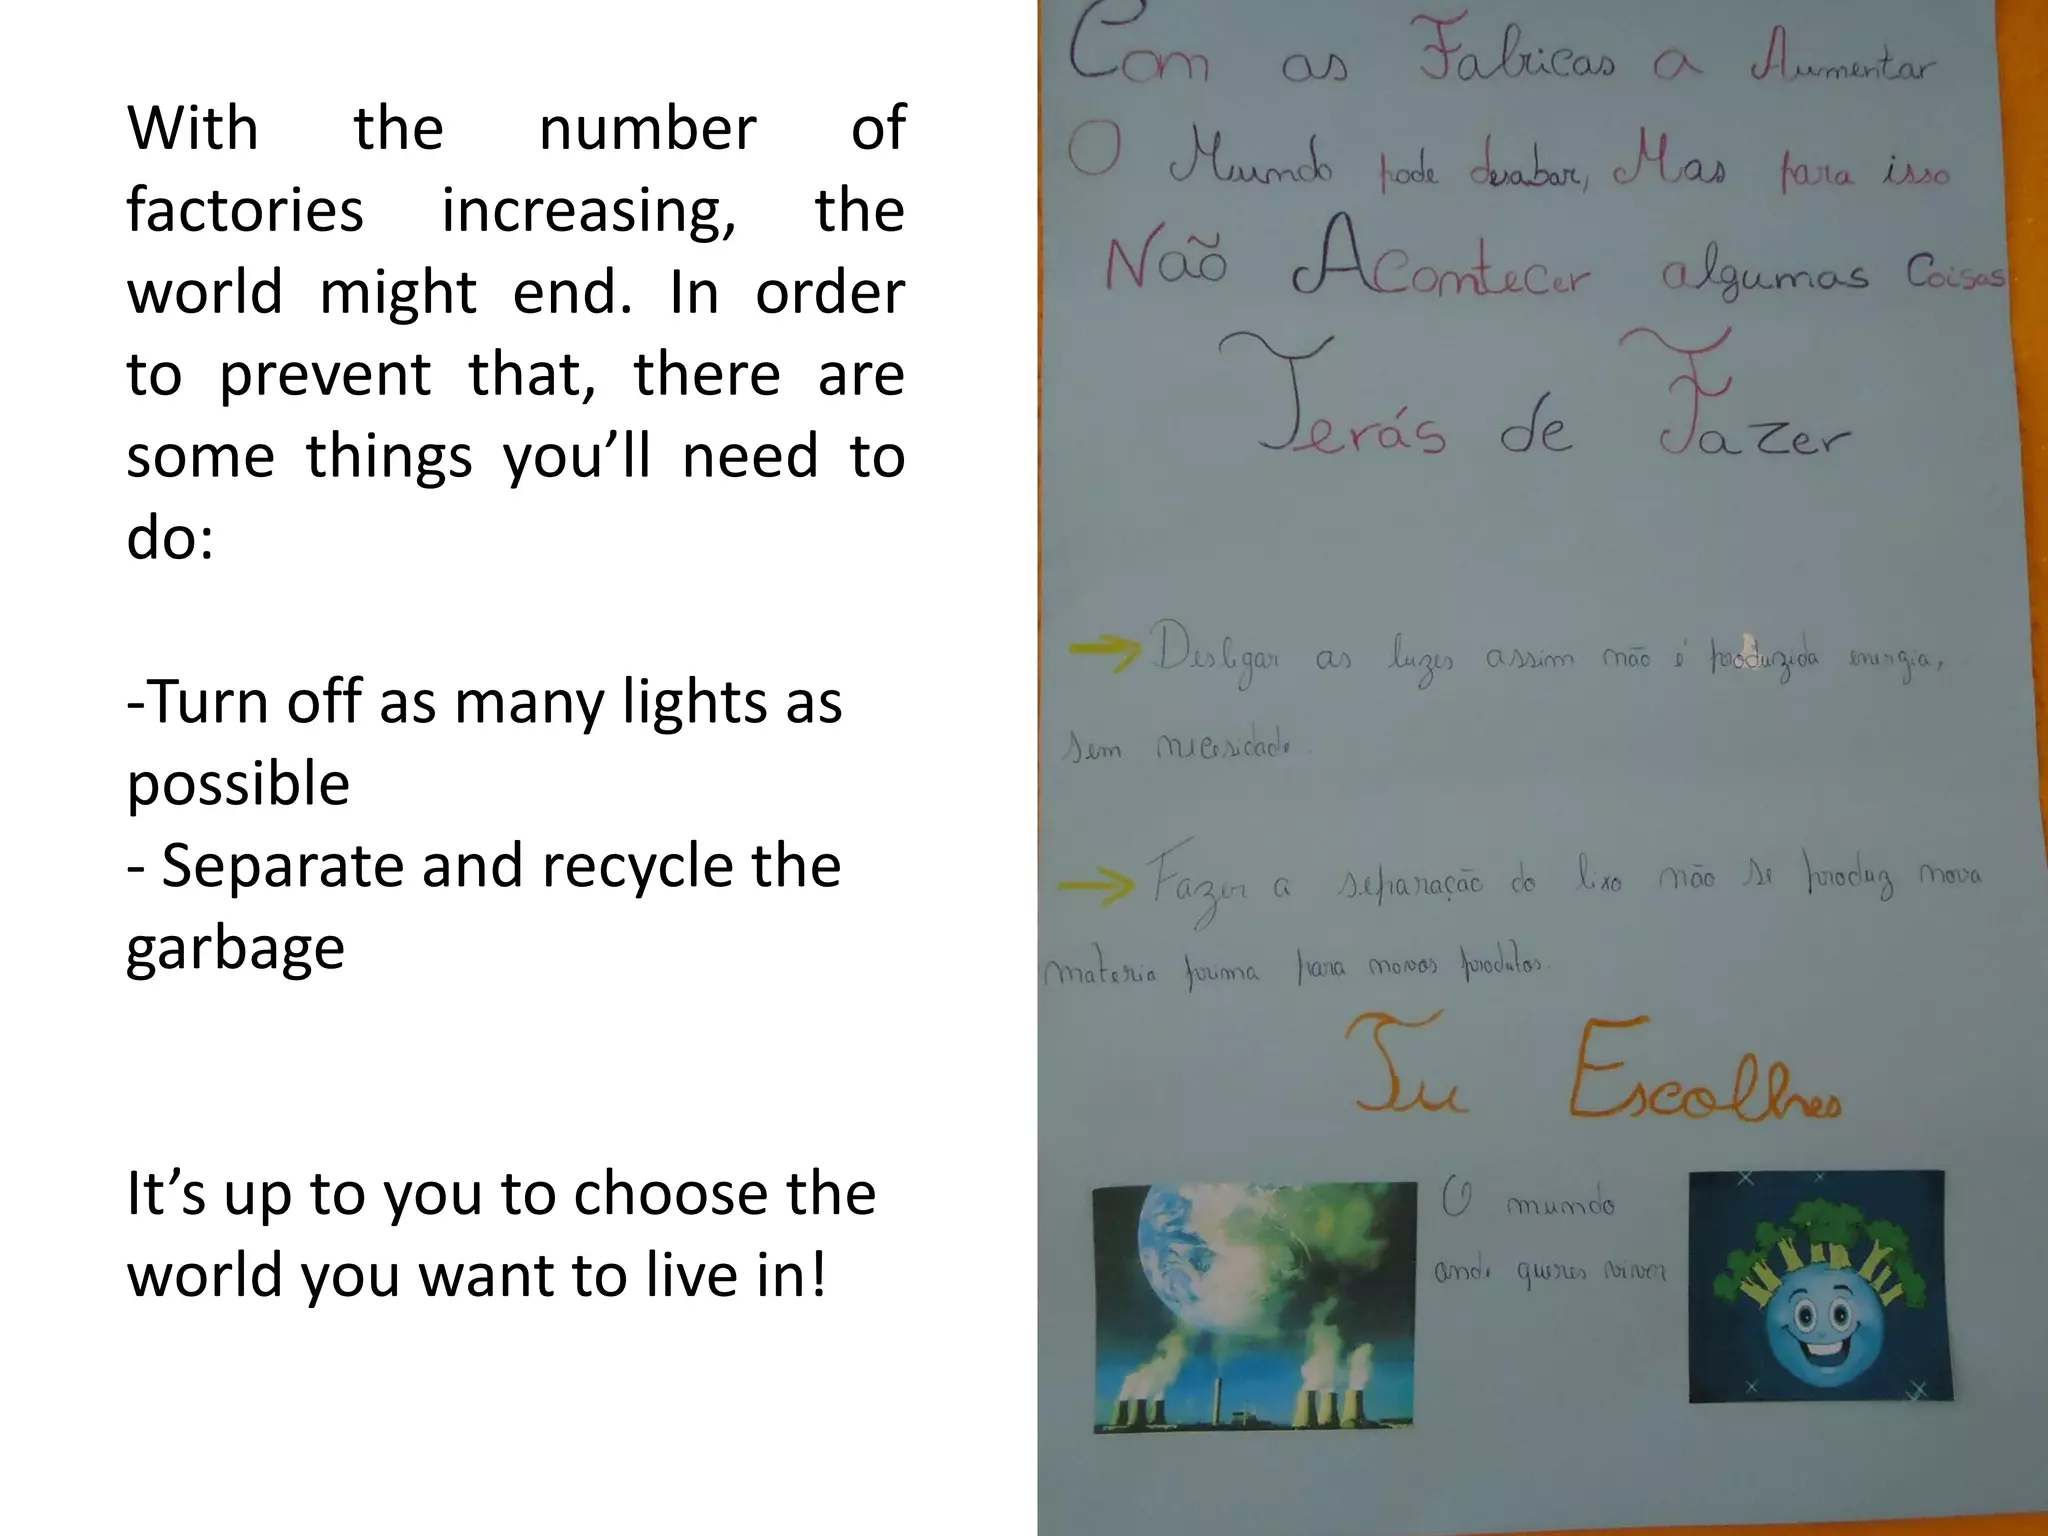 With the number of
factories increasing, the
world might end. In order
to prevent that, there are
some things you’ll need to
do:
-Turn off as many lights as
possible
- Separate and recycle the
garbage
It’s up to you to choose the
world you want to live in!
Com as Fabricas a Aumentar
O Mundo pode desabar, Mas para isso
Não Acontecer algumas Coisas
Terás de Fazer
→ Desligar as luzes assim não é produzida energia,
sem necesidade.
→ Fazer a separação do lixo não se produz nova
materia prima para novos produtos.
Tu Escolhes
O mundo
onde queres viver